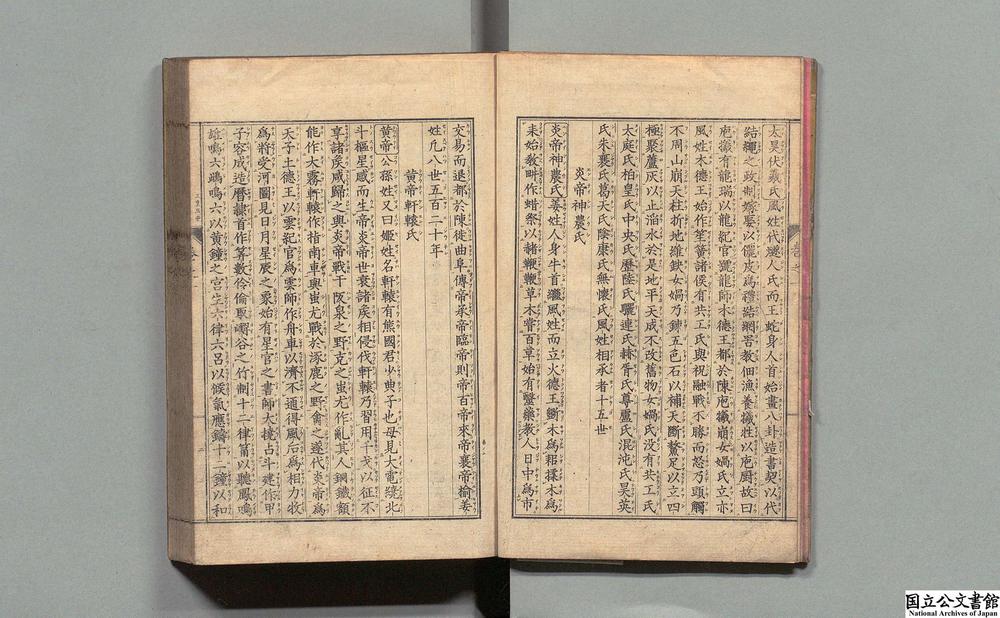 太昊伏羲氏風姓代燧人氏而王蛇身人首始畫八卦造書契以代
結繩之政制嫁娶以儷皮爲禮結網罟教佃漁養犧牲以庖厨故曰
庖犧有龍瑞以龍紀官號龍師木德王都於陳庖犧崩女媧氏立亦
風姓木德王始作笙簧諸侯有共工氏與祝融戰不勝而怒乃頭觸
不周山崩天柱折地維缺女媧乃鍊五色石以補天斷鰲足以立四
極聚蘆灰以止滔水於是地平天成不改舊物女媧氏没有共工氏
太庭氏柏皇氏中央氏歷陸氏驪連氏赫胥氏尊盧氏混沌氏昊英
氏朱襄氏葛天氏陰康氏無懷氏風姓相承者十五世
炎帝神農氏
炎帝神農氏姜姓人身牛首繼風姓而立火德王斲木爲耜揉木爲
耒始教畊作蜡祭以赭鞭鞭草木嘗百草始有醫藥教人日中爲市
交易而退都於陳徙曲阜傳帝承帝臨帝則帝百帝來帝襄帝榆姜
姓凡八世五百二十年
黄帝軒轅氏
黄帝公孫姓又曰姬姓名軒轅有熊國君少典子也母見大電繞北
斗樞星感而生帝炎帝世衰諸矦相侵伐軒轅乃習用干戈以征不
享諸矦咸歸之與炎帝戰于阪泉之野克之蚩尤作亂其人銅鐵額
能作大霧軒轅作指南車與蚩尤戰於涿鹿之野禽之遂代炎帝爲
天子土德王以雲紀官爲雲師作舟車以濟不通得風后爲相力牧
爲將受河圖見日月星辰之象始有星官之書師大撓占斗建作甲
子容成造曆隷首作筭數伶倫取嶰谷之竹制十二律筩以聽鳳鳴
雄鳴六雌鳴六以黄鐘之宫生六律六吕以候氣應鑄十二鐘以和
国立公文書館
National Archives of Japan